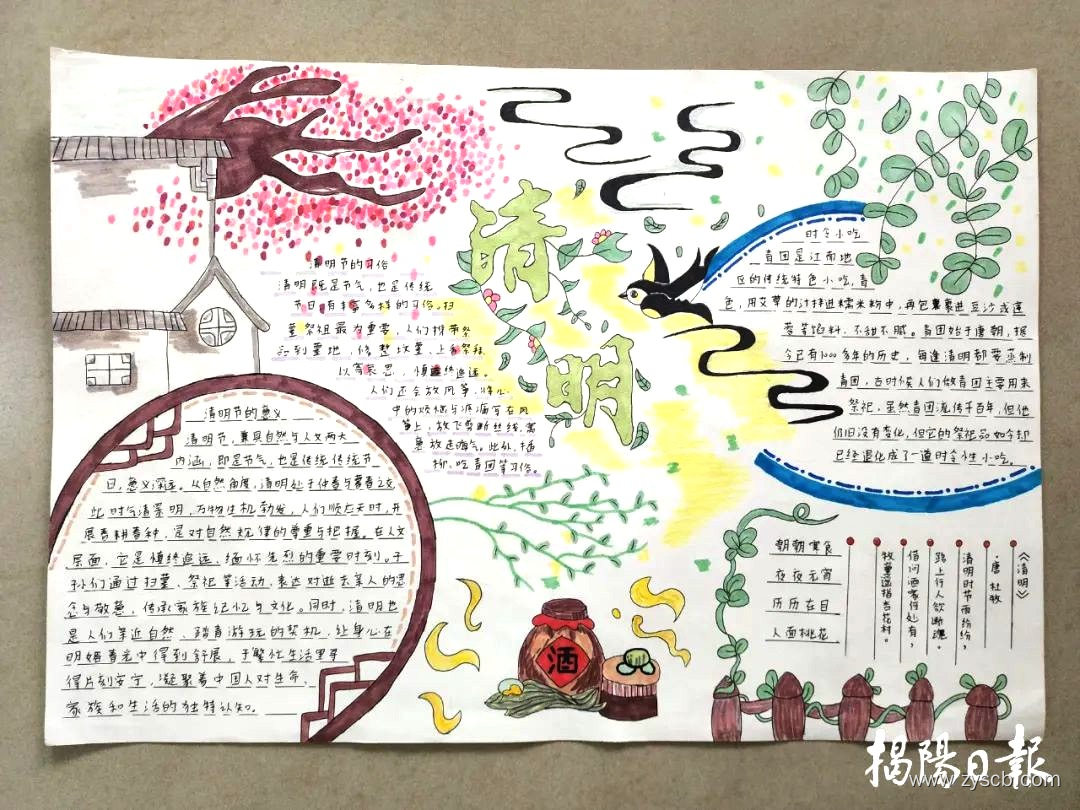 清明
清明节的习俗
清明既是节气，也是传统
节日，有丰富多样的习俗。扫
墓祭祖最为重要，人们携带祭
品到墓地，修整坟墓、上香祭拜
以寄哀思，慎终追远。
人们还会放风筝，将心
中的烦恼与源漏写在风
筝上，放飞剪断丝线，寓
意放走晦气。此外，插
柳、吃青团等习俗。
清明节的意义
清明节，兼具自然与人文两大
内涵，即是节气，也是传统传统节
日，意义深远。从自然角度，清明处于仲春与暮春之交
此时气清景明，万物生机勃发，人们顺应天时，开
展春耕春种，是对自然规律的尊重与把握。在人文
层面，它是慎终追远、缅怀先烈的重要时刻。子
孙们通过扫墓、祭祀等活动，表达对逝去亲人的思
念与敬意，传承家族记忆与文化。同时，清明也
是人们亲近自然、踏青游玩的契机，让身心在
明媚春光中得到舒展，于繁忙生活里寻
得片刻安宁，凝聚着中国人对生命、
家族和生活的独特认知。
时令小吃
青团是江南地
区的传统特色小吃，青
色，用艾草的汁拌进糯米粉中，再包裹进豆沙或莲
蓉等馅料，不甜不腻。青团始于唐朝，据
今已有1000多年的历史，每逢清明都要蒸制
青团，古时候人们做青团主要用来
祭祀，虽然青团流传千百年，但他
们旧没有变化，但它的祭祀品如今却
已经退化成了一道时令性小吃。
朝朝寒食
夜夜元宵
历历在目
人面桃花
《清明》
·唐 杜牧
清明时节雨纷纷，
路上行人欲断魂。
借问酒家何处有，
牧童遥指杏花村。
酒
揭陽日報
www.zyscb.com